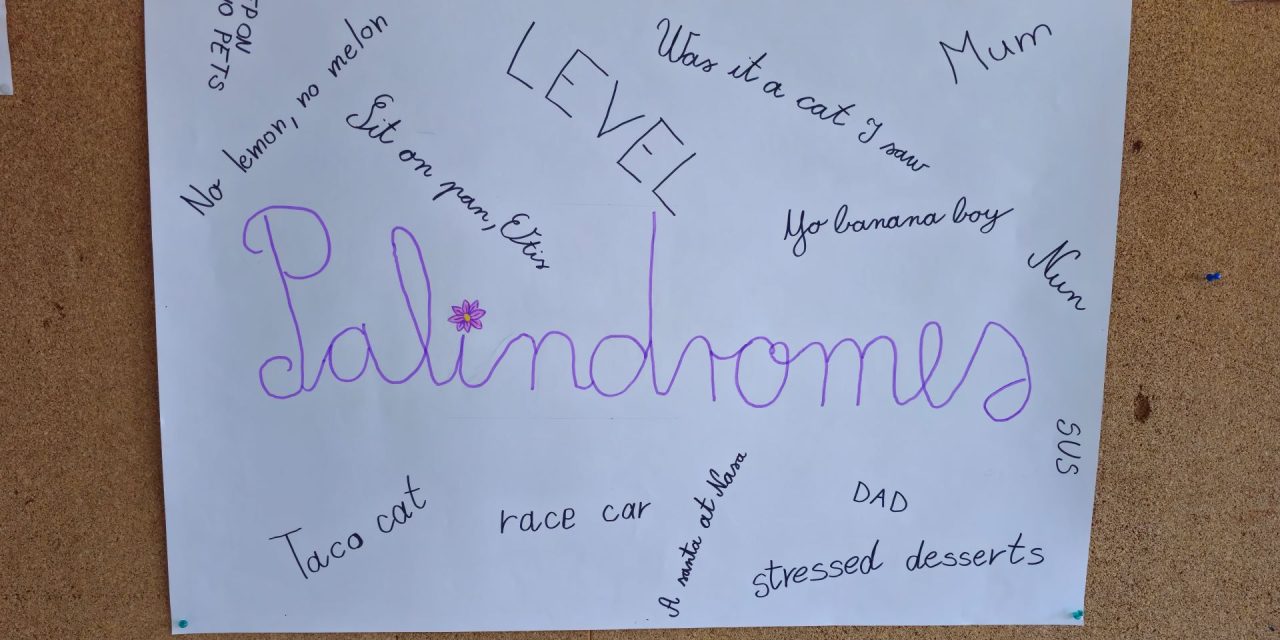 EP ON
O PETS
No lemon, no melon
Sit on pan,
LEVEL
Was it a cat I saw
Mum
Yo banana boy
Nun
Palindromes
SUS
Taco cat
race car
A santa at Nasa
DAD
stressed desserts